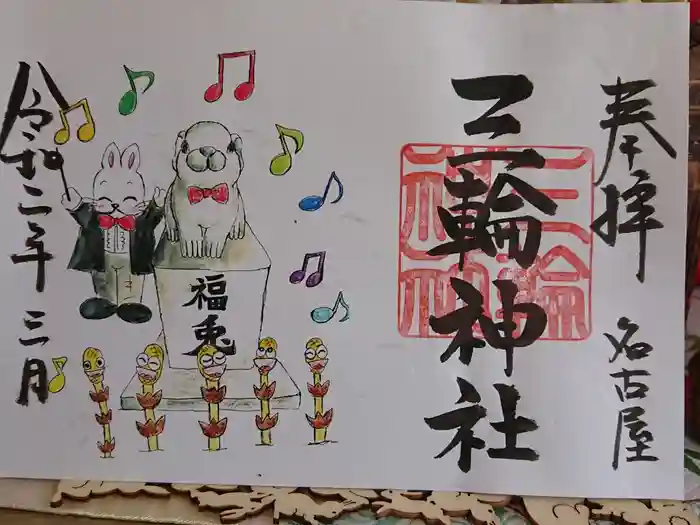 奉拝
名古屋
三輪神社
三輪
神社
福兎
令和二年
三月